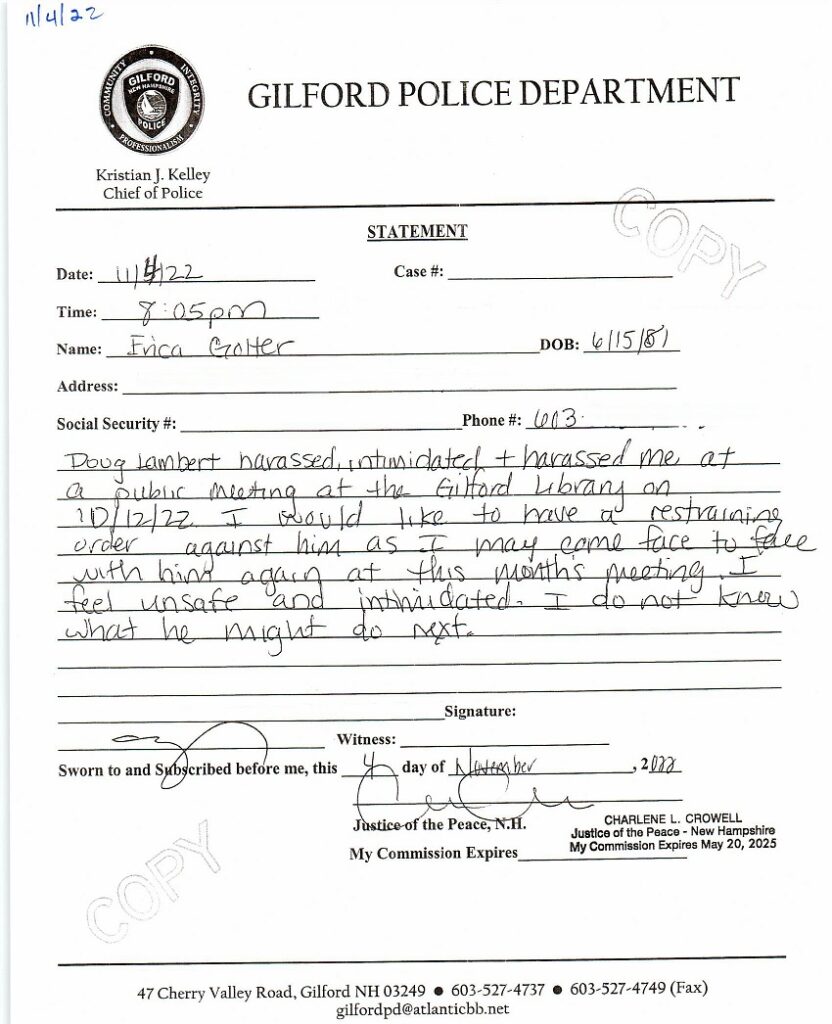 11/4/22
COMMUNITY INTEGRITY PROFESSIONALISM
GILFORD
NEW HAMPSHIRE
POLICE
GILFORD POLICE DEPARTMENT
Kristian J. Kelley
Chief of Police
COPY
STATEMENT
Date: 11/4/22 Case #:
Time: 8:05pm
Name: Erica Golter DOB: 6/15/81
Address:
Social Security #: Phone #: 603
Doug Lambert harassed, intimidated + harassed me at
a public meeting at the Gilford Library on
10/12/22. I would like to have a restraining
order against him as I may come face to face
with him again at this months meeting. I
feel unsafe and intimidated. I do not know
what he might do next.
Signature:
Witness:
Sworn to and Subscribed before me, this 4 day of November, 2022
Justice of the Peace, N.H.
My Commission Expires
CHARLENE L. CROWELL
Justice of the Peace - New Hampshire
My Commission Expires May 20, 2025
COPY
47 Cherry Valley Road, Gilford NH 03249 ● 603-527-4737 ● 603-527-4749 (Fax)
gilfordpd@atlanticbb.net